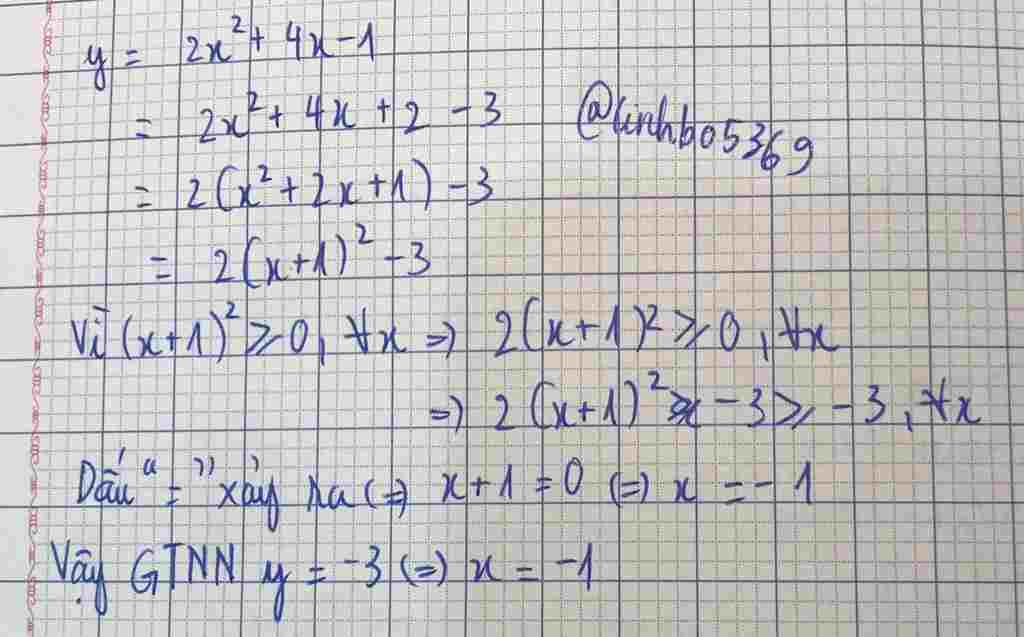 y = 2x² + 4x - 1
= 2x² + 4x + 2 - 3
@linhb05369
= 2(x² + 2x + 1) - 3
= 2(x+1)² - 3
Vì (x+1)² ⩾ 0, ∀x ⇒ 2(x+1)² ⩾ 0, ∀x
⇒ 2(x+1)² - 3 ⩾ -3, ∀x
Dấu “=” xảy ra ⇔ x+1 = 0 ⇔ x = -1
Vậy GTNN y = -3 ⇔ x = -1